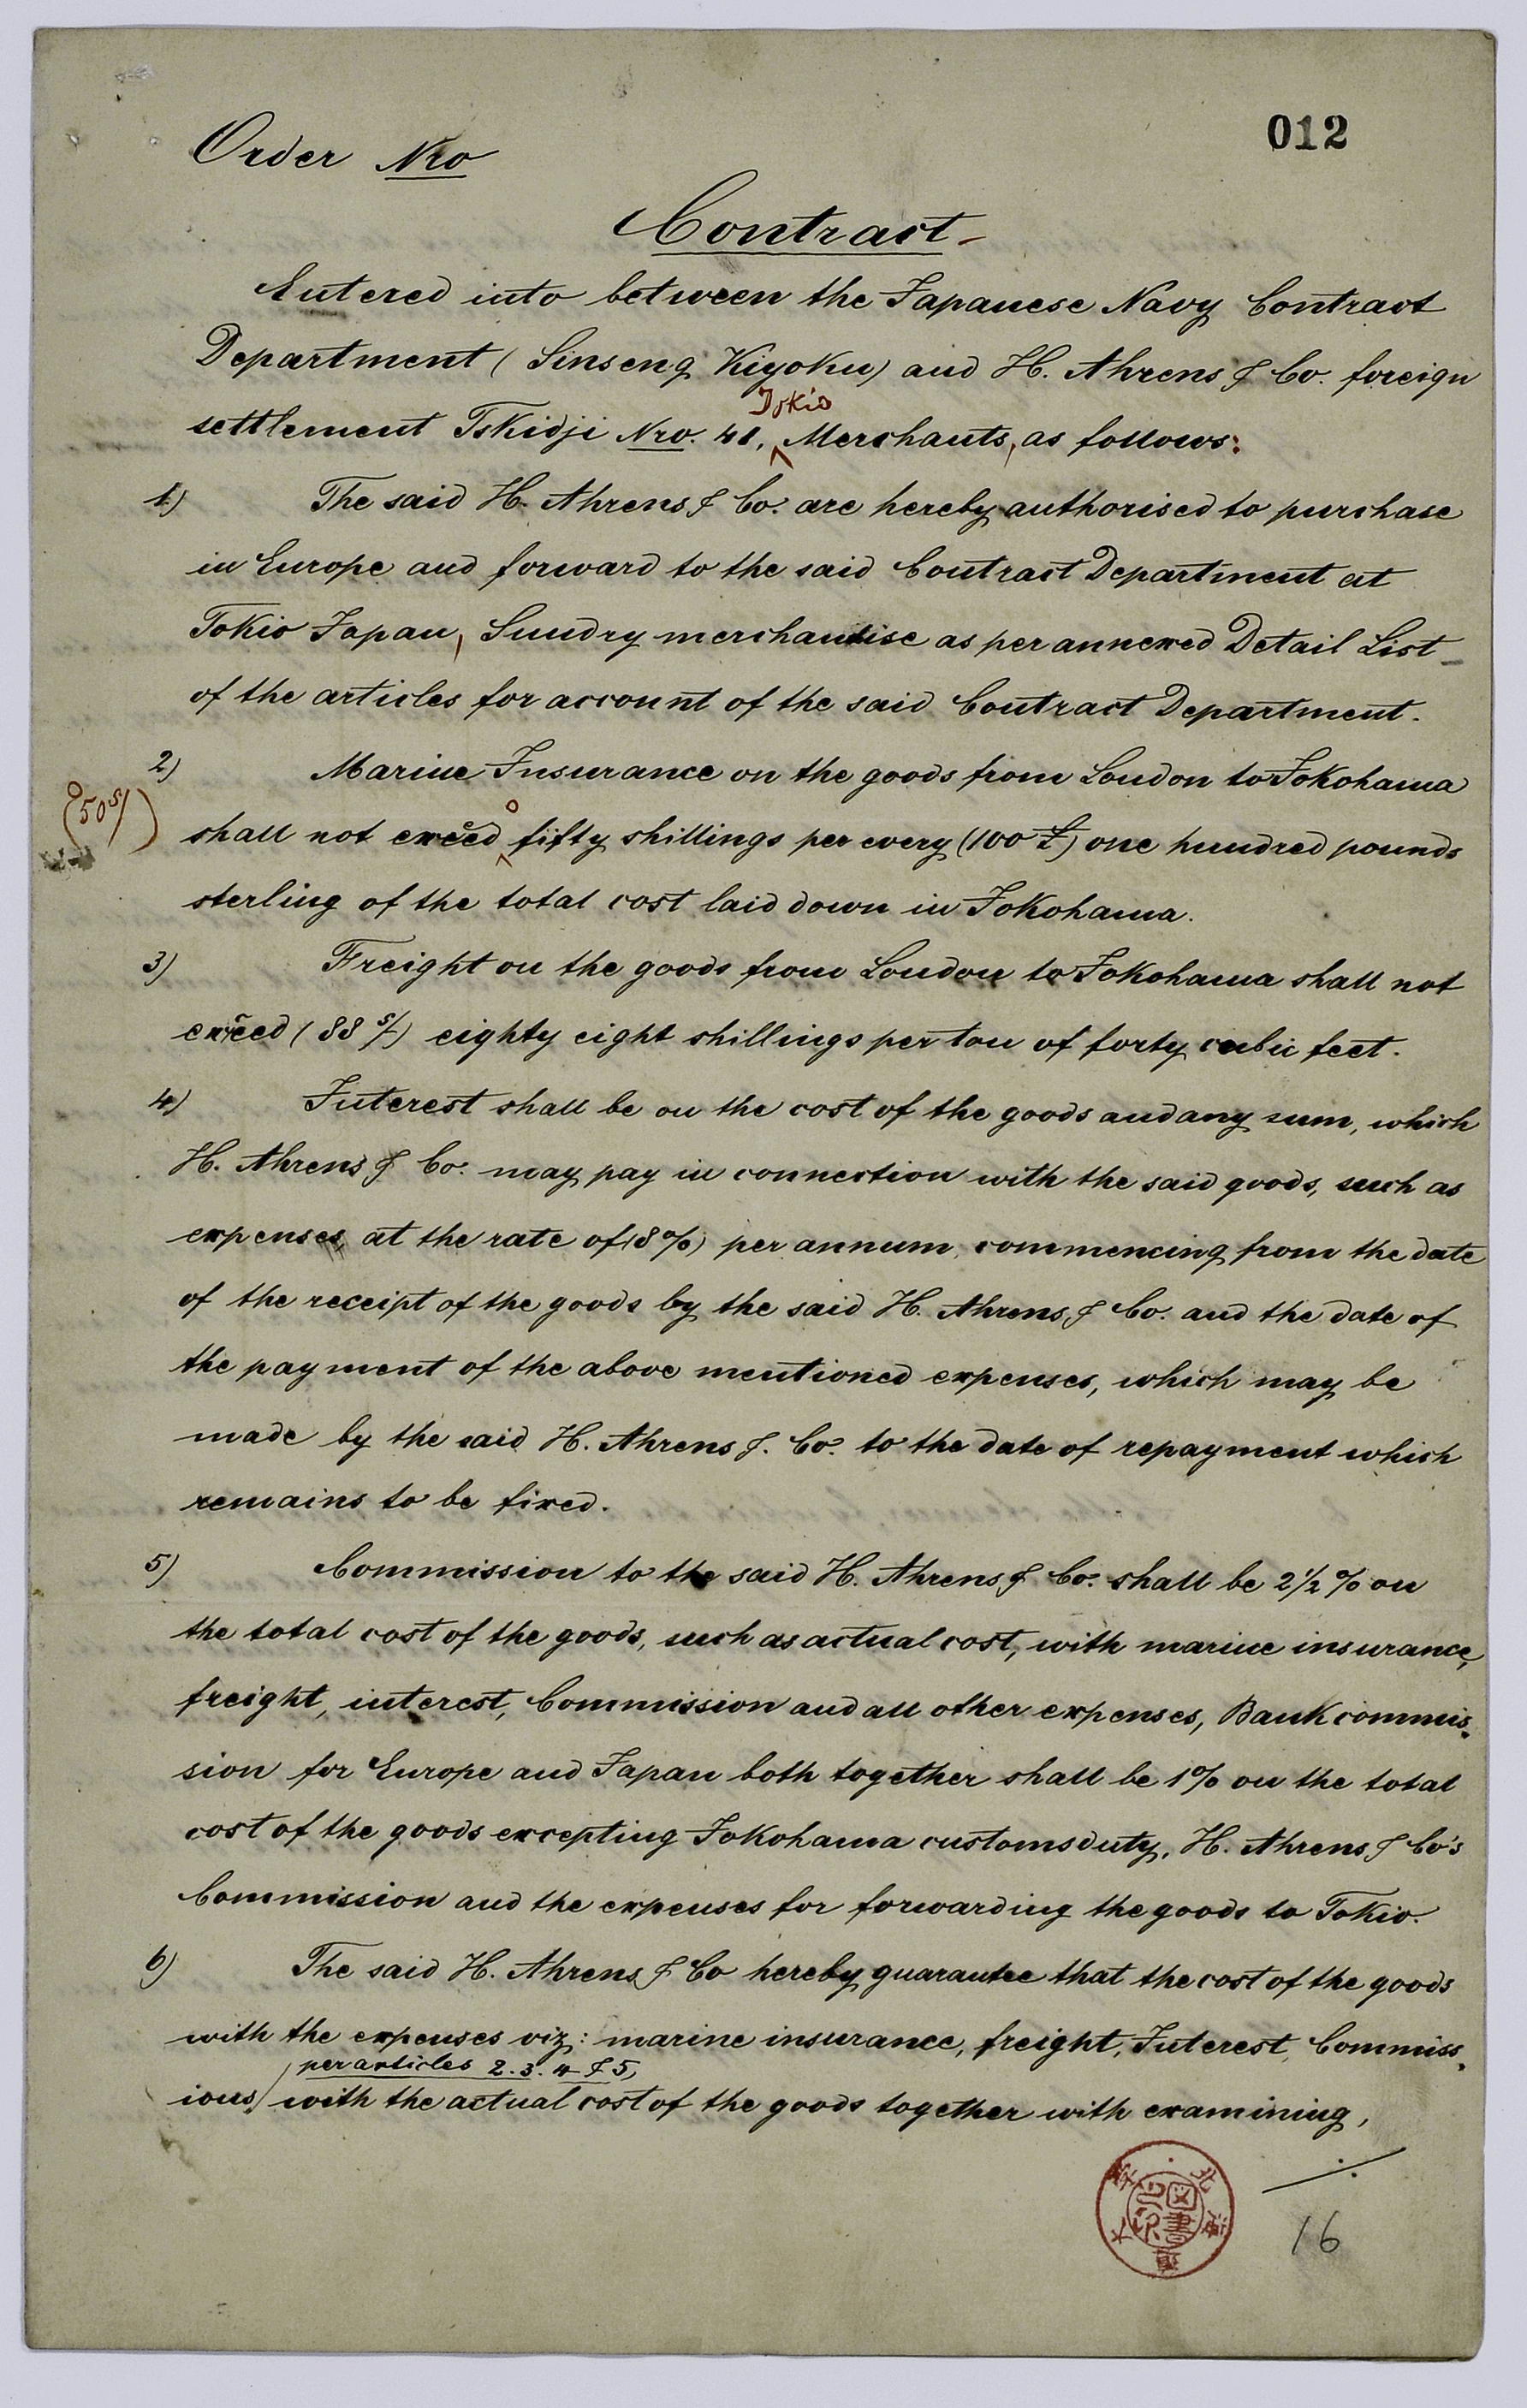 012
Order Nro
Contract
Entered into between the Japanese Navy Contract
Department (Sinseng Kiyoku) and H. Ahrens & Co. foreign
Tokio
settlement Tskidji Nro. 41, Merchants, as follows:
1) The said H. Ahrens & Co. are hereby authorised to purchase
in Europe and forward to the said Contract Department at
Tokio Japan, Sundry merchandise as per annexed Detail List
of the articles for account of the said Contract Department.
2) Marine Insurance on the goods from London to Yokohama
(50 s/)
shall not exceed fifty shillings per every (100 £) one hundred pounds
sterling of the total cost laid down in Yokohama.
3) Freight on the goods from London to Yokohama shall not
exceed (88 s/) eighty eight shillings per ton of forty cubic feet.
4) Interest shall be on the cost of the goods and any sum, which
H. Ahrens & Co. may pay in connection with the said goods, such as
expenses, at the rate of (8%) per annum, commencing from the date
of the receipt of the goods by the said H. Ahrens & Co. and the date of
the payment of the above mentioned expenses, which may be
made by the said H. Ahrens & Co. to the date of repayment which
remains to be fixed.
5) Commission to the said H. Ahrens & Co. shall be 2 1/2 % on
the total cost of the goods, such as actual cost, with marine insurance,
freight, interest, Commission and all other expenses, Bank commis-
sion for Europe and Japan both together shall be 1% on the total
cost of the goods excepting Yokohama customsduty, H. Ahrens & Co's
Commission and the expenses for forwarding the goods to Tokio.
6) The said H. Ahrens & Co hereby guarantee that the cost of the goods
with the expenses viz: marine insurance, freight, Interest, Commiss-
per articles 2. 3. 4 & 5,
ions, with the actual cost of the goods together with examining,
北海道大学
図書之印
16